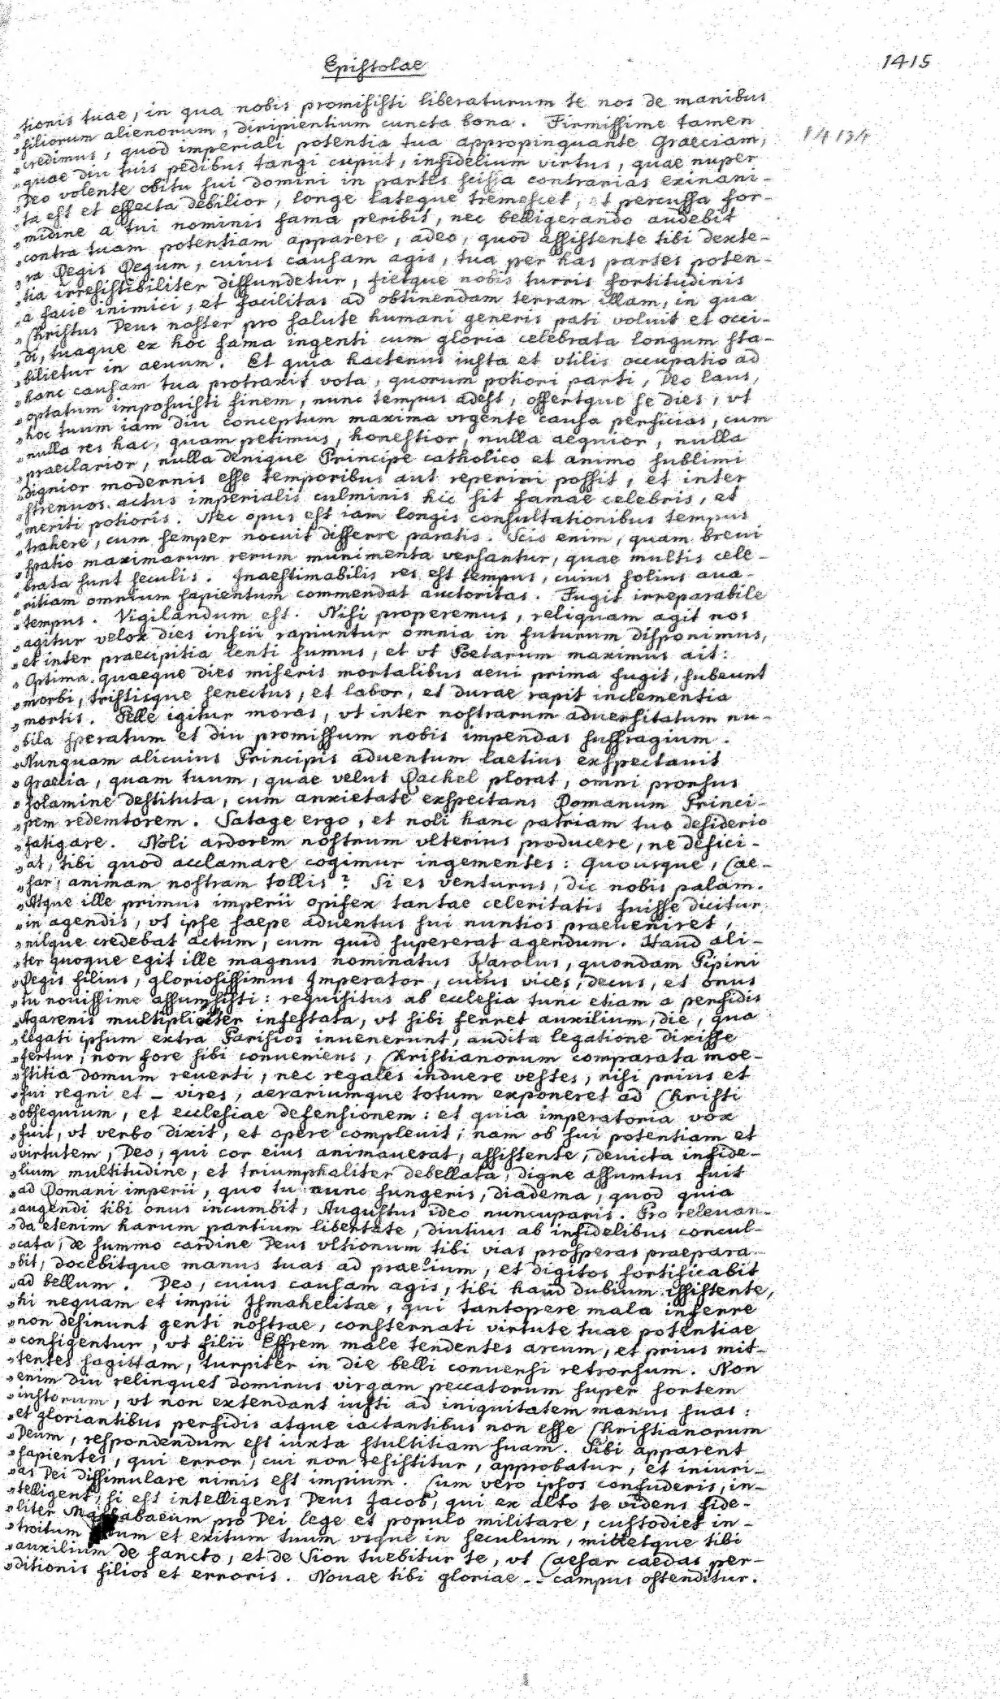 Epistolae
1415
1413/4
„tionis tuae, in qua nobis promisisti liberaturum te nos de manibus
„filiorum alienorum, diripientium cuncta bona. Firmissime tamen
„credimus, quod imperiali potentia tua appropinquante Graeciam,
„quae diu tuis pedibus tangi cupiit, infidelium virtus, quae nuper
„Deo volente obitu sui domini in partes scissa contrarias exinani-
„ta est et effecta debilior, longe lateque tremescet, et percussa for-
„midine a tui nominis fama peribit, nec belligerando audebit
„contra tuam potentiam apparere, adeo, quod assistente tibi dexte-
„ra Regis Regum, cuius causam agis, tua per has partes poten-
„tia irresistibiliter diffundetur, fietque nobis turris fortitudinis
„a facie inimici, et facilitas ad obtinendam terram illam, in qua
„Christus Deus noster pro salute humani generis pati voluit et occi-
„di, tuaque ex hoc fama ingenti cum gloria celebrata longum sta-
„bilietur in aevum. Et quia hactenus iusta et vtilis occupatio ad
„hanc causam tua protraxit vota, quorum potiori parti, Deo laus,
„optatum imposuisti finem, nunc tempus adest, offertque se dies, vt
„hoc tuum iam diu conceptum maxima vrgente causa perficias, cum
„nulla res hac, quam petimus, honestior, nulla aequior, nulla
„praeclarior, nulla denique Principe catholico et animo sublimi
„dignior modernis esse temporibus aut reperiri possit, et inter
„strenuos actus imperialis culminis hic sit famae celebris, et
„meriti potioris. Nec opus est iam longis consultationibus tempus
„trahere, cum semper nocuit differre paratis. Scis enim, quam brevi
„spatio maximarum rerum munimenta versantur, quae multis cele-
„brata sunt seculis. Inaestimabilis res est tempus, cuius solius aua-
„ritiam omnium sapientum commendat auctoritas. Fugit irreparabile
„tempus. Vigilandum est. Nisi properemus, reliquam agit nos
„agitur velox dies inscii rapiuntur omnia in futurum disponimus,
„et inter praecipitia lenti sumus, et vt Poetarum maximus ait:
„Optima quaeque dies miseris mortalibus aeui prima fugit, subeunt
„morbi, tristisque senectus, et labor, et durae rapit inclementia
„mortis. Pelle igitur moras, vt inter nostrarum aduersitatum nu-
„bila speratum et diu promissum nobis impendas suffragium.
„Nunquam alicuius Principis aduentum laetius exspectauit
„Graecia, quam tuum, quae velut Rachel plorat, omni prorsus
„solamine destituta, cum anxietate exspectans Romanum Princi-
„pem redemtorem. Satage ergo, et noli hanc patriam tuo desiderio
„fatigare. Noli ardorem nostrum vlterius producere, ne defici-
„at, tibi quod acclamare cogimur ingementes: Quousque, Cae-
„sar, animam nostram tollis? Si es venturus, dic nobis palam.
„Atque ille primus imperii opifex tantae celeritatis fuisse dicitur
„in agendis, vt ipse saepe aduentus sui nuntios praeueniret,
„nilque credebat actum, cum quid supererat agendum. Haud ali-
„ter quoque egit ille magnus nominatus Karolus, quondam Pipini
„Regis filius, gloriosissimus Imperator, cuius vices, decus, et onus
„tu nouissime assumsisti: requisitus ab ecclesia tunc etiam a perfidis
„Agarenis multipliciter infestata, vt sibi ferret auxilium, die, qua
„legati ipsum extra Parisios inuenerunt, audita legatione dixisse
„fertur, non fore sibi conueniens, Christianorum comparata moe-
„stitia domum reuerti, nec regales induere vestes, nisi prius et
„sui regni et – vires, aerariumque totum exponeret ad Christi
„obsequium, et ecclesiae defensionem: et quia imperatoria vox
„fuit, vt verbo dixit, et opere compleuit; nam ob sui potentiam et
„virtutem, Deo, qui cor eius animauerat, assistente, deuicta infide-
„lium multitudine, et triumphaliter debellata, digne assumtus fuit
„ad Romani imperii, quo tu nunc fungeris, diadema, quod quia
„augendi tibi onus incumbit, Augustus ideo nuncuparis. Pro releuan-
„da etenim harum partium libertate, diutius ab infidelibus concul-
„cata, de summo cardine Deus vltionum tibi vias prosperas praepara-
„bit, docebitque manus tuas ad praelium, et digitos fortificabit
„ad bellum. Deo, cuius causam agis, tibi haud dubium assistente,
„hi nequam et impii Ismahelitae, qui tantopere mala inferre
„non desinunt genti nostrae, consternati virtute tuae potentiae
„configentur, vt filii Effrem male tendentes arcum, et prius mit-
„tentes sagittam, turpiter in die belli conuersi retrorsum. Non
„enim diu relinquet dominus virgam peccatorum super sortem
„iustorum, vt non extendant iusti ad iniquitatem manus suas:
„et gloriantibus perfidis atque iactantibus non esse Christianorum
„Deum, respondendum est iuxta stultitiam suam. Sibi apparent
„sapientes, qui error, cui non resistitur, approbatur, et iniuri-
„as Dei dissimulare nimis est impium. Cum vero ipsos confuderis, in-
„telligent, si est intelligens Deus Jacob, qui ex alto te videns fide-
„liter Machabaeum pro Dei lege et populo militare, custodiet in-
„troitum tuum et exitum tuum vsque in seculum, mittetque tibi
„auxilium de sancto, et de Sion tuebitur te, vt Caesar caedas per-
„ditionis filios et erroris. Nouae tibi gloriae -- campus ostenditur.